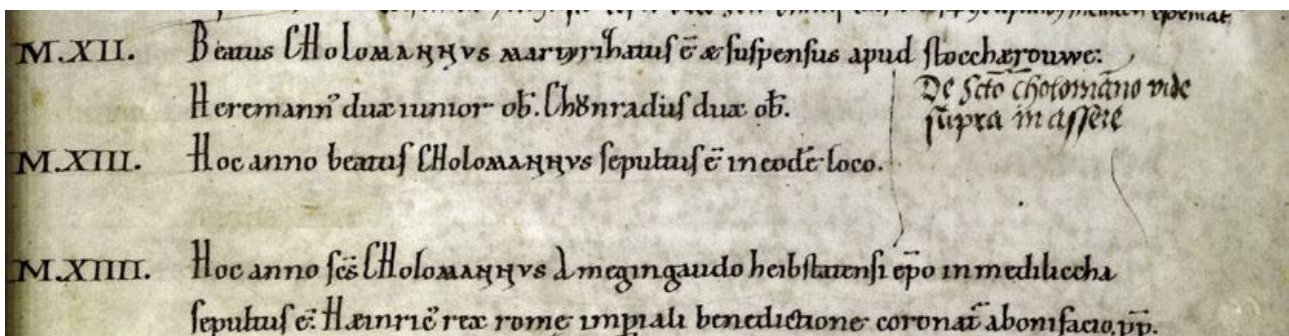 M.XII. Beatus CHOLOMANNVS martyrizatus ē & suspensus apud stoccherouwe:
De scto cholomāno vide
Heremann' dux iunior ob. Chönradius dux ob.
supra in assere
M.XIII. Hoc anno beatus CHOLOMANNVS sepultus ē in eodē loco.
M.XIIII. Hoc anno scs CHOLOMANNVS a megingaudo heibstatensi epo in mediliccha
sepultus ē. Hæinric' rex rome impiali benedictione coronat abonifacio pp.